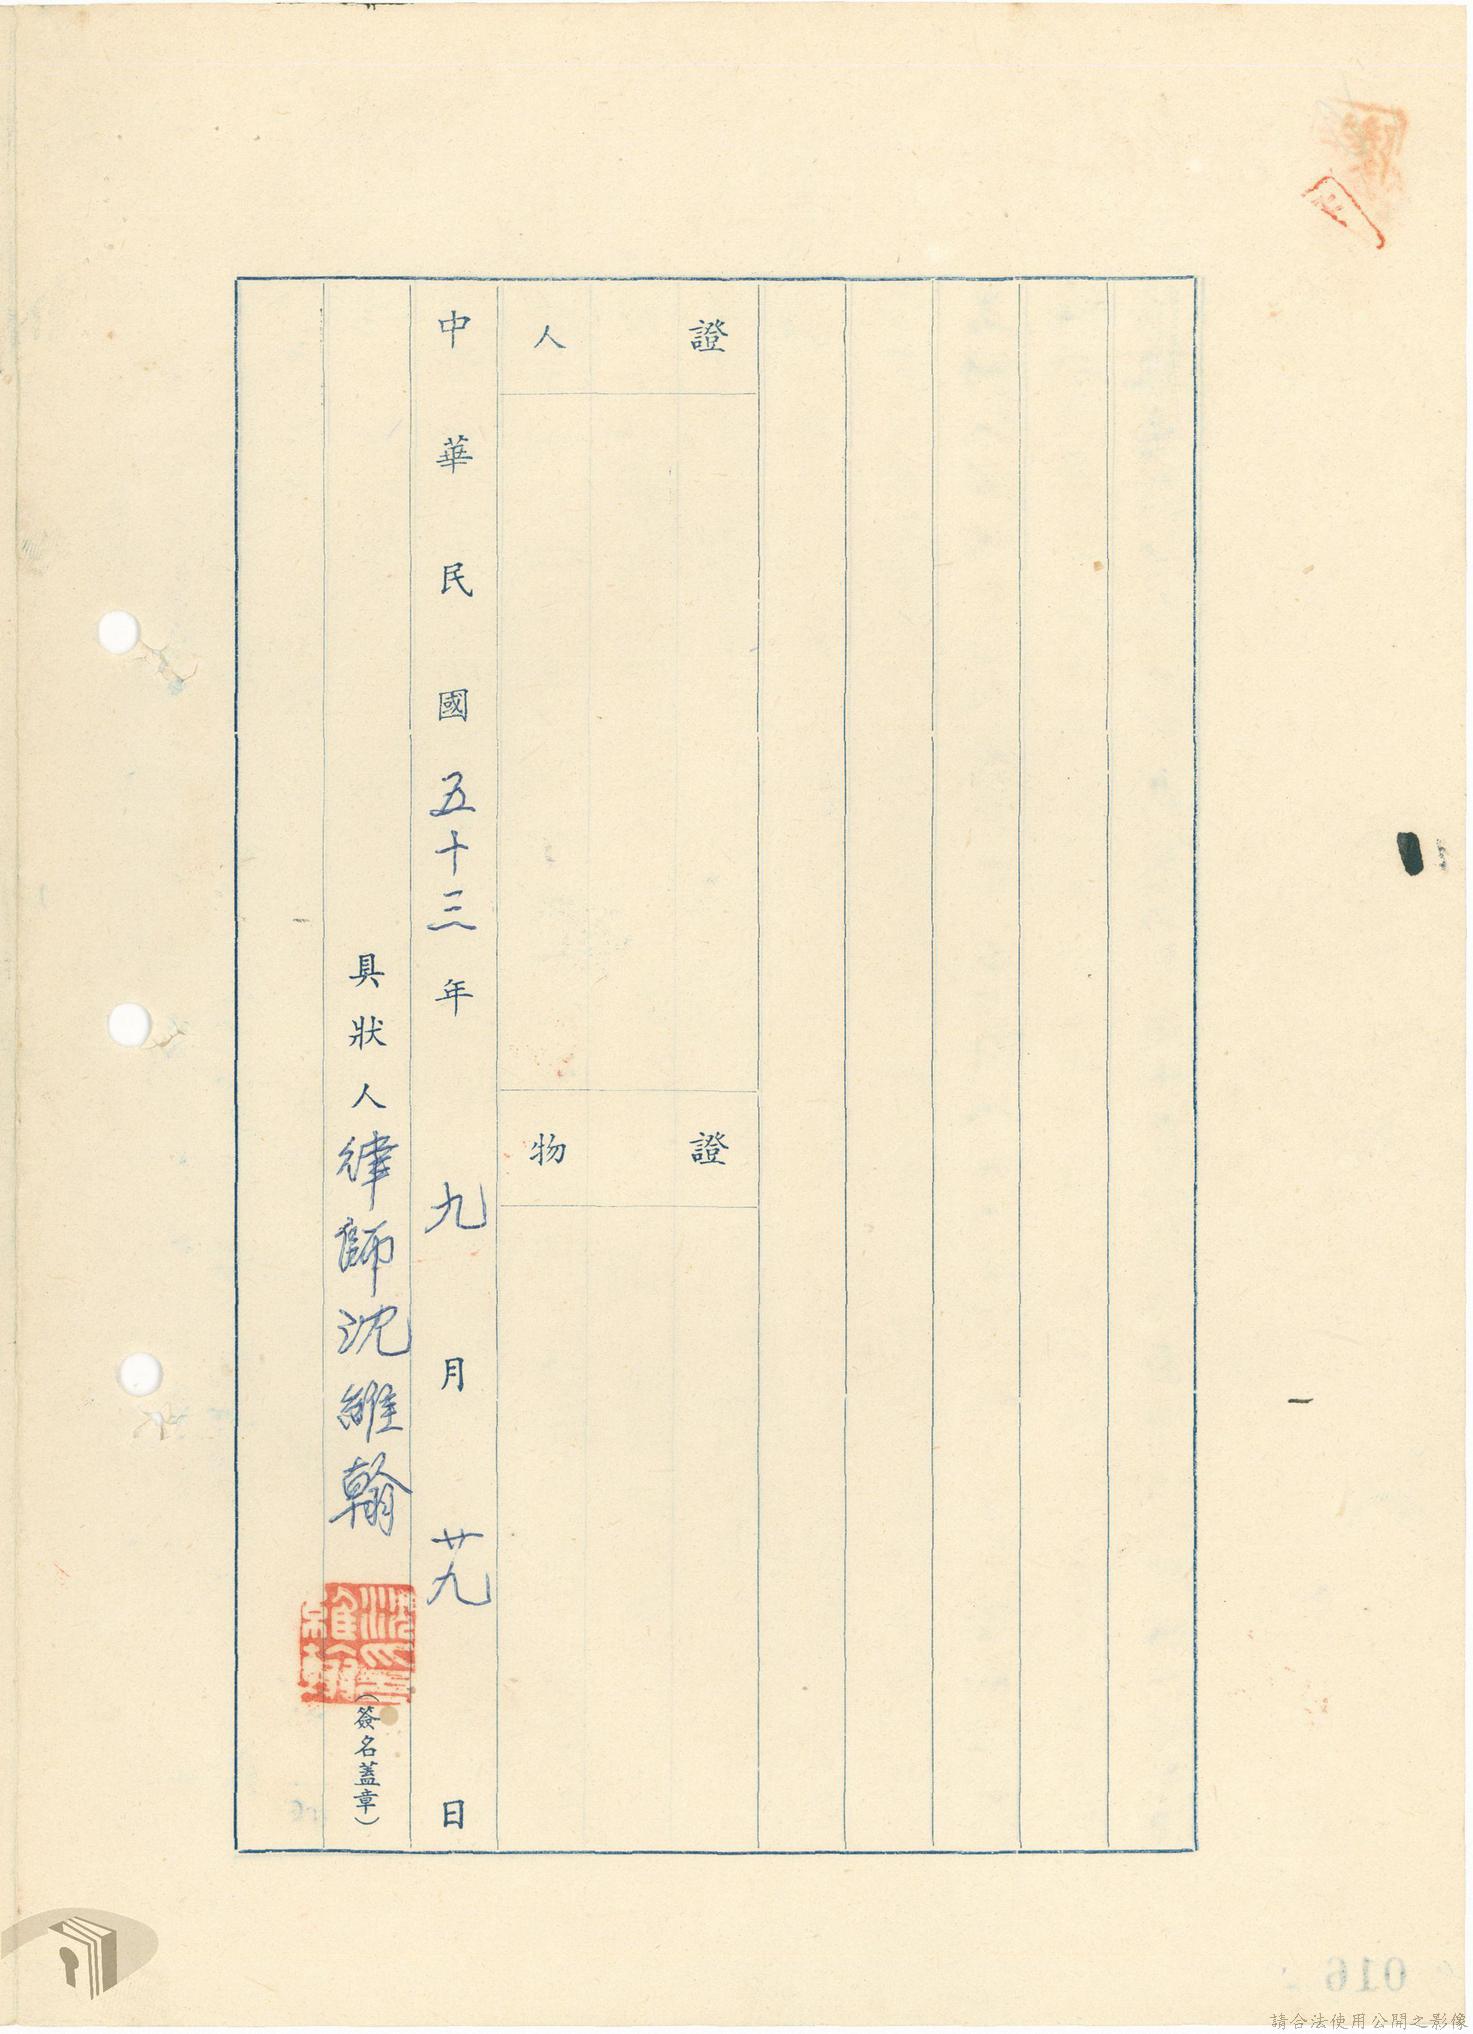 證人
證物
中華民國五十三年九月廿九日
具狀人律師沈維翰（簽名蓋章）
沈印維翰
016
請合法使用公開之影像